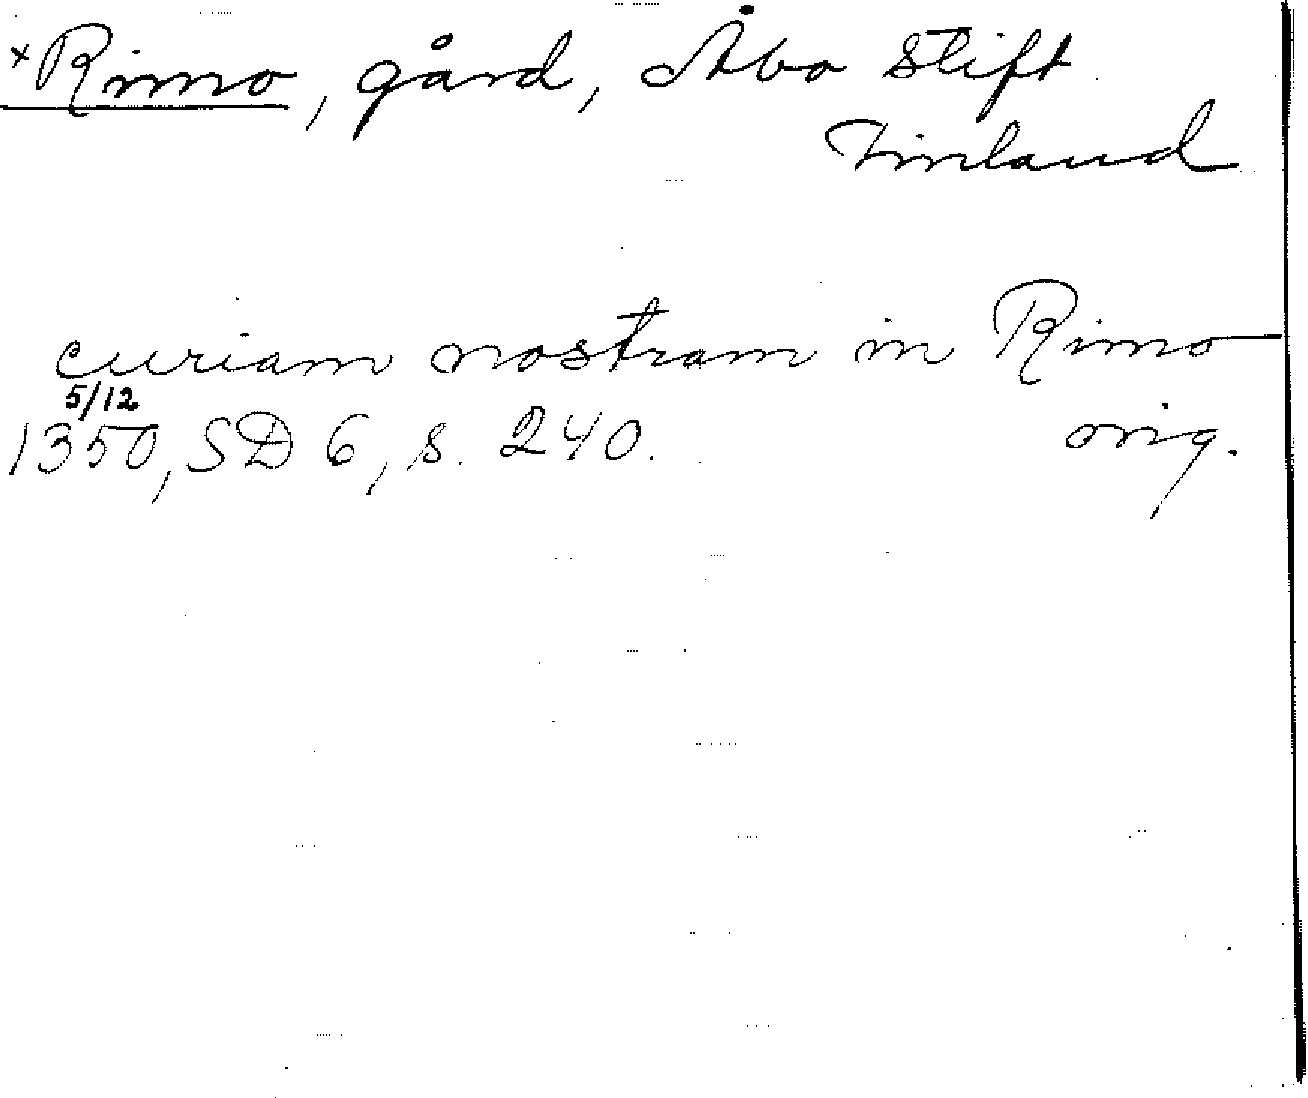 ×Rimo, gård, Åbo stift
Finland
curiam nostram in Rimo
5/12
1350, SD 6, s. 240. orig.